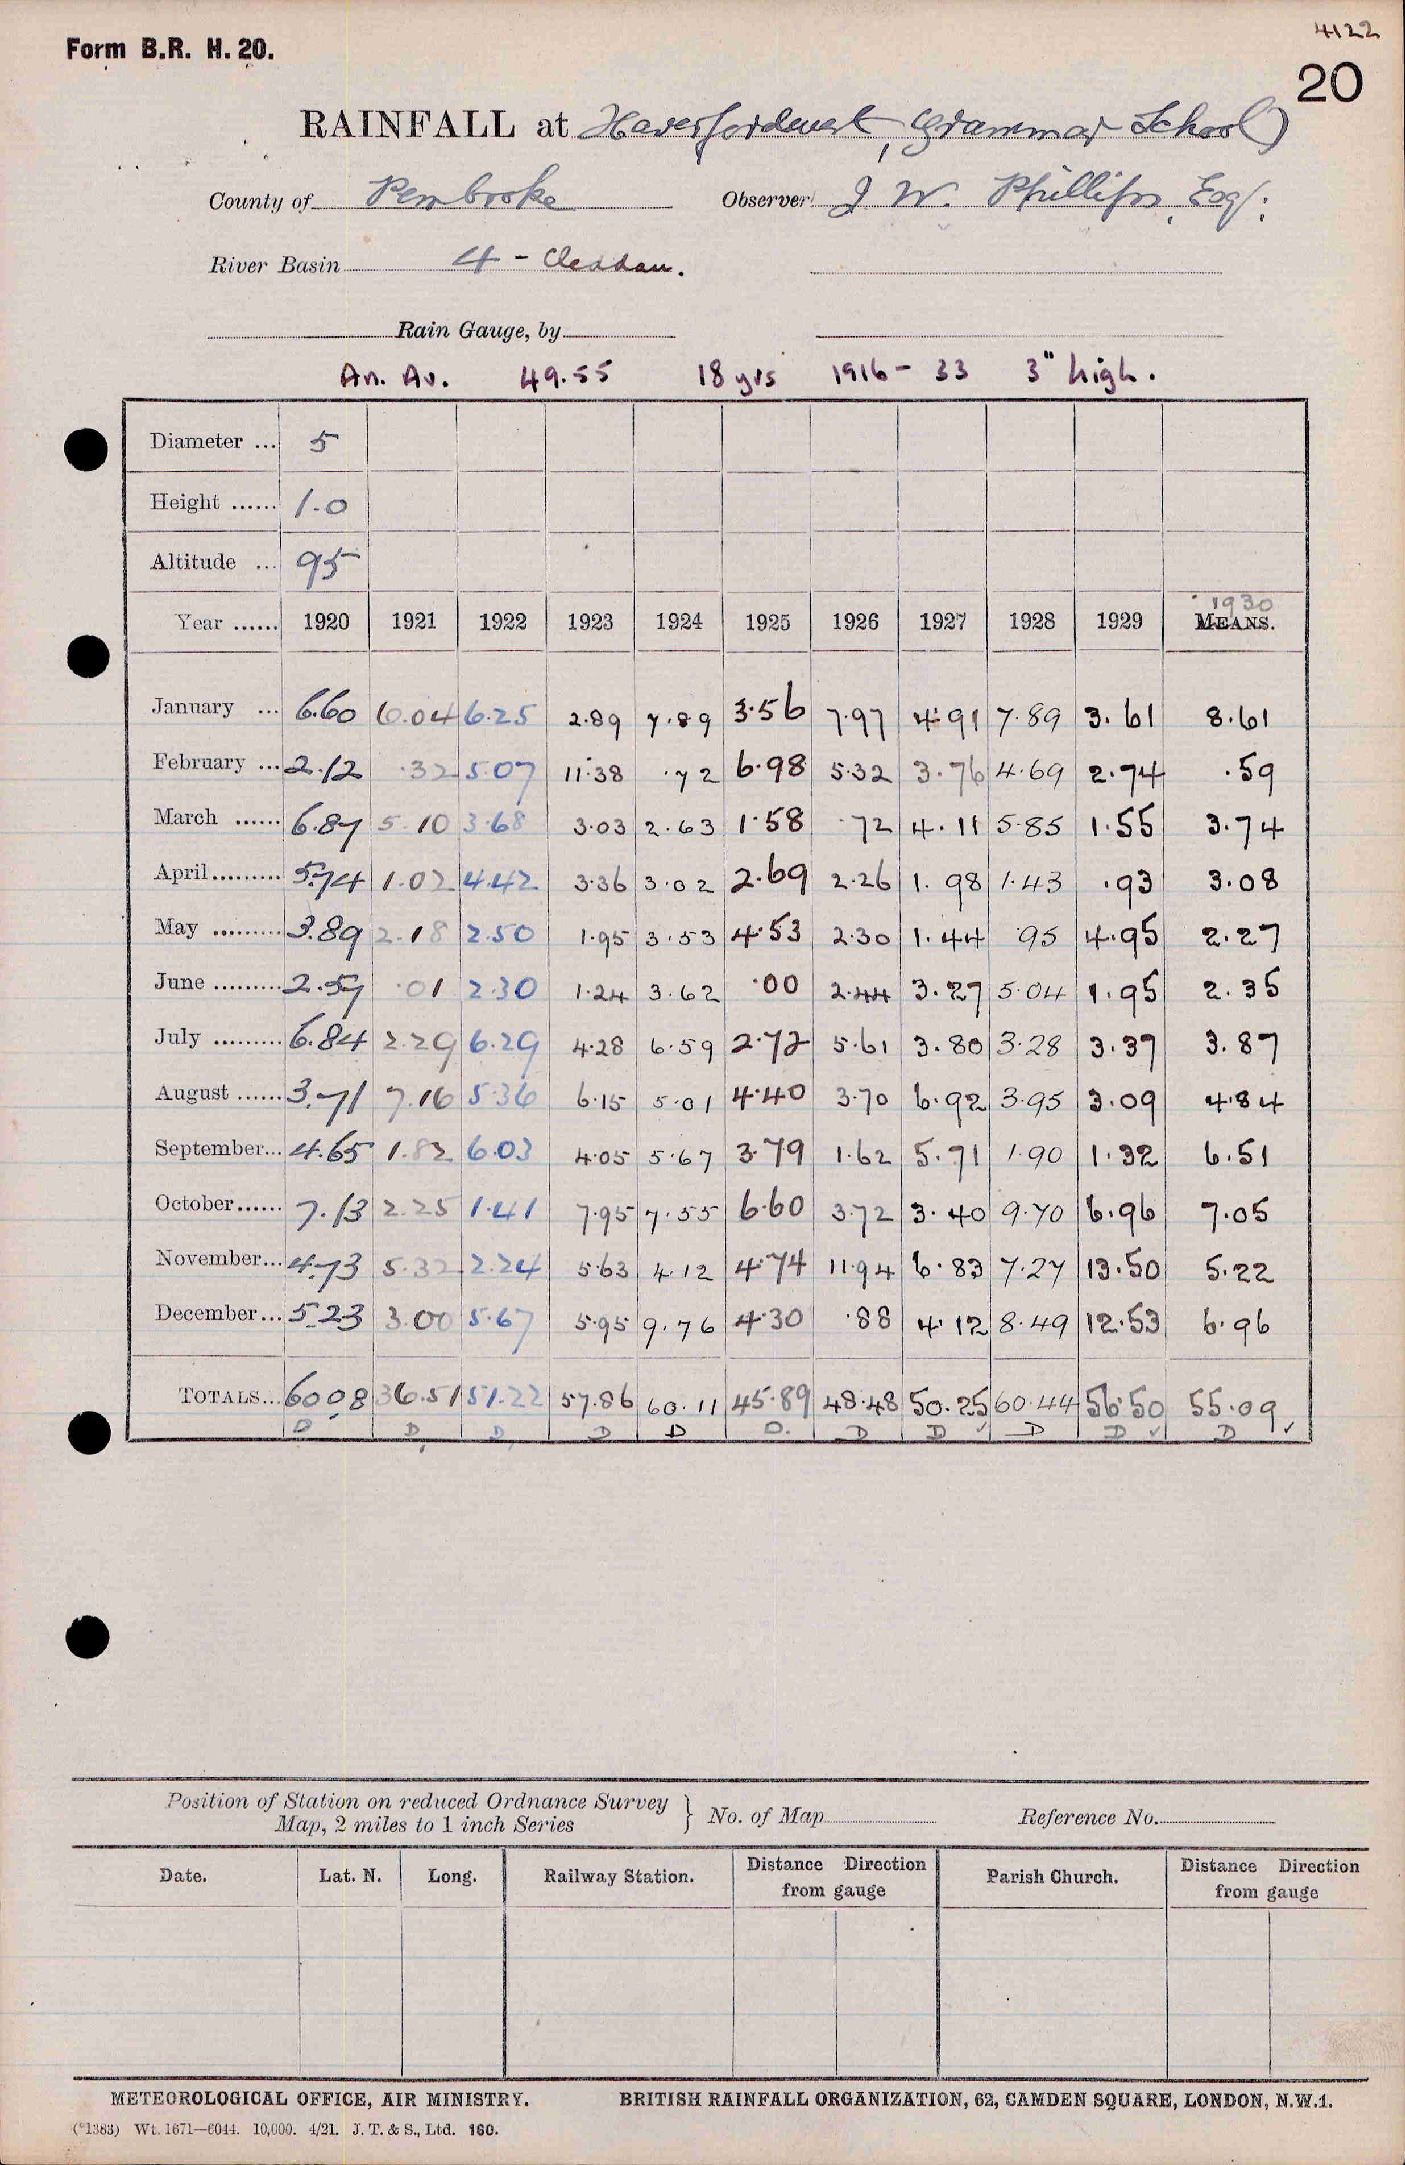 4122
Form B.R. H. 20.
20
RAINFALL at Haverfordwest (Grammar School)
County of Pembroke Observer J W. Phillips, Esq.
River Basin 4 - Cleddau.
Rain Gauge, by
An. Av. 49.55 18 yrs 1916 - 33 3" high.
Diameter ... 5
Height ...... 1.0
Altitude ... 95
1930
Year ...... 1920 1921 1922 1923 1924 1925 1926 1927 1928 1929 MEANS.
January ... 6.60 6.04 6.25 2.89 7.89 3.56 7.97 4.91 7.89 3.61 8.61
February ... 2.12 .32 5.07 11.38 .72 6.98 5.32 3.76 4.69 2.74 .59
March ...... 6.87 5.10 3.68 3.03 2.63 1.58 .72 4.11 5.85 1.55 3.74
April......... 5.74 1.02 4.42 3.36 3.02 2.69 2.26 1.98 1.43 .93 3.08
May ......... 3.89 2.18 2.50 1.95 3.53 4.53 2.30 1.44 .95 4.95 2.27
June ......... 2.57 .01 2.30 1.24 3.62 .00 2.44 3.27 5.04 1.95 2.35
July ......... 6.84 2.29 6.29 4.28 6.59 2.72 5.61 3.80 3.28 3.37 3.87
August ...... 3.71 7.16 5.36 6.15 5.01 4.40 3.70 6.92 3.95 3.09 4.84
September... 4.65 1.82 6.03 4.05 5.67 3.79 1.62 5.71 1.90 1.32 6.51
October...... 7.13 2.25 1.41 7.95 7.55 6.60 3.72 3.40 9.70 6.96 7.05
November... 4.73 5.32 2.24 5.63 4.12 4.74 11.94 6.83 7.27 13.50 5.22
December... 5.23 3.00 5.67 5.95 9.76 4.30 .88 4.12 8.49 12.53 6.96
TOTALS... 60.08 36.51 51.22 57.86 60.11 45.89 48.48 50.25 60.44 56.50 55.09
D D D D D D D D ✓ D D ✓ D ✓
Position of Station on reduced Ordnance Survey
Map, 2 miles to 1 inch Series } No. of Map Reference No.
Date. Lat. N. Long. Railway Station. Distance Direction from gauge Parish Church. Distance Direction from gauge
METEOROLOGICAL OFFICE, AIR MINISTRY. BRITISH RAINFALL ORGANIZATION, 62, CAMDEN SQUARE, LONDON, N.W.1.
(*1383) Wt. 1671—6044. 10,000. 4/21. J. T. & S., Ltd. 160.